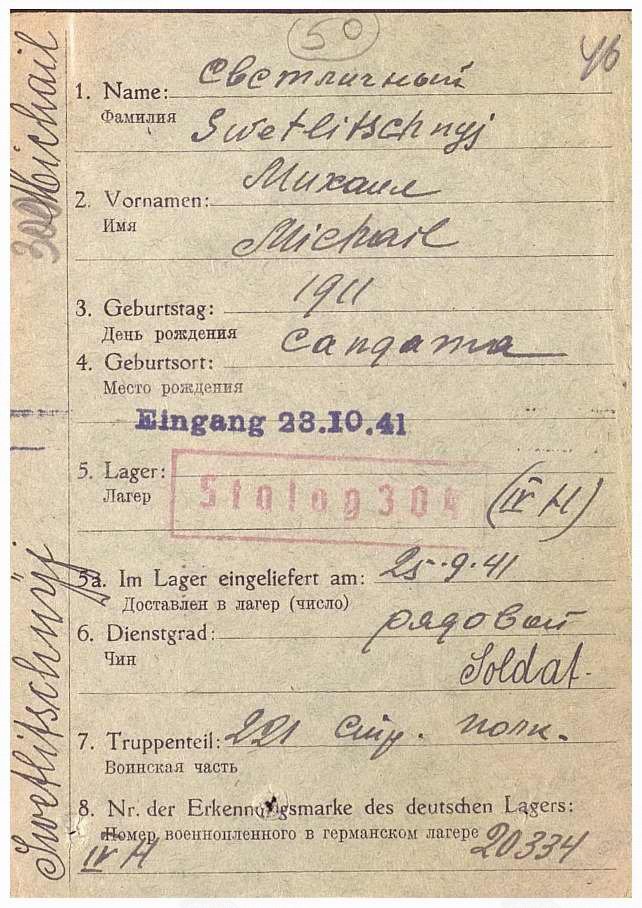 50
46
1. Name: Светличный
Фамилия Swetlitschnyj
2. Vornamen: Михаил
Имя
Michail
3. Geburtstag: 1911
День рождения
4. Geburtsort: Сандата
Место рождения
Eingang 23.10.41
5. Lager: Stalag 304 (IV H)
Лагер
5a. Im Lager eingeliefert am: 25.9.41
Доставлен в лагер (число)
6. Dienstgrad: рядовой
Чин
Soldat.
7. Truppenteil: 221 стр. полк.
Воинская часть
8. Nr. der Erkennungsmarke des deutschen Lagers:
Номер военнопленного в германском лагере 20334
IV H
Swetlitschnyj Michail